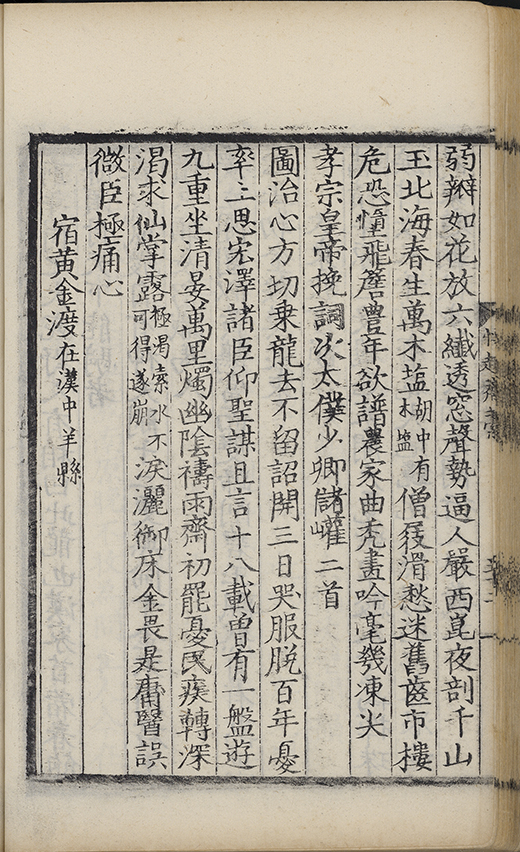 弱瓣如花放六纖透窓聲勢逼人嚴西崑夜剖千山
玉北海春生萬木塩胡中有木塩僧屐滑愁迷舊齒市樓
危恐憧飛簷豐年欲譜農家曲禿畫吟毫幾凍尖
孝宗皇帝挽詞次太僕少卿儲巏二首
圖治心方切乗龍去不留詔開三日哭服脫百年憂
率土思宏澤諸臣仰聖謀且言十八載曽有一盤遊
九重坐清晏萬里燭幽陰禱雨齋初罷憂民疾轉深
渴求仙掌露極渴索水不可得遂崩淚灑御床金畏是庸醫誤
微臣極痛心
宿黄金渡在漢中羊縣
趙齋